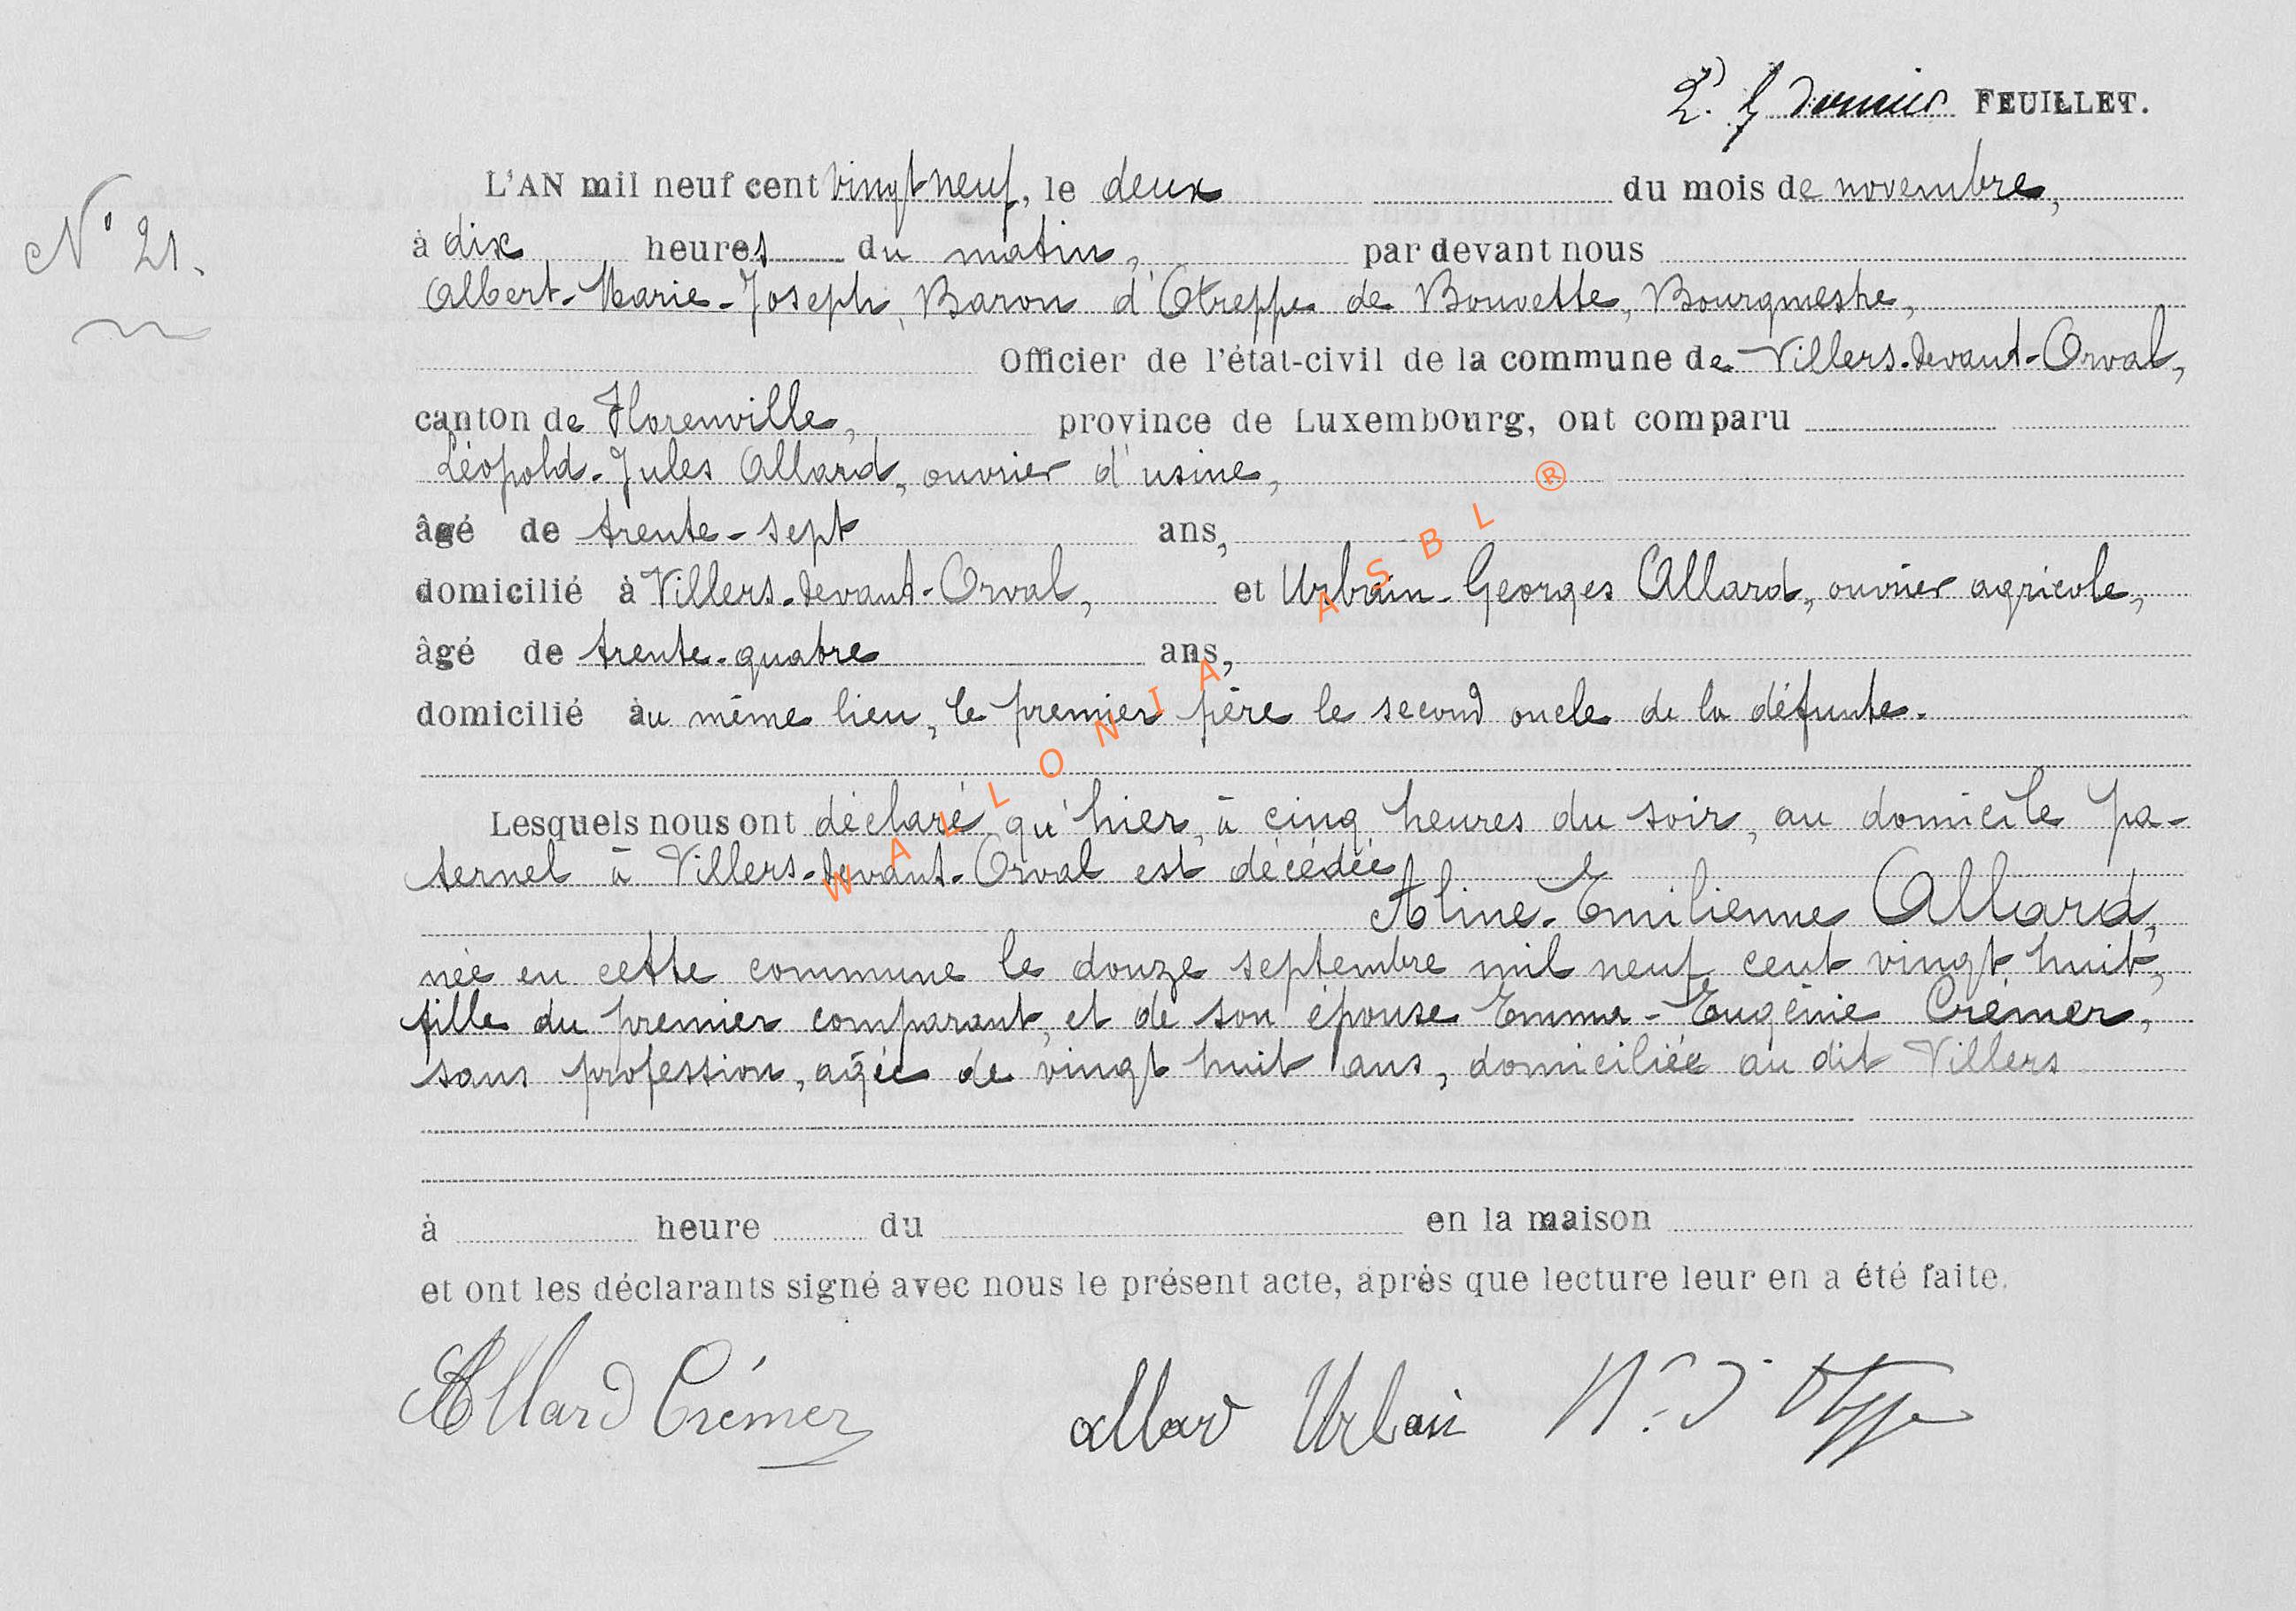 2. & dernier FEUILLET.
N° 21.
L'AN mil neuf cent vingt neuf, le deux du mois de novembre,
à dix heures du matin, par devant nous
Albert-Marie-Joseph, Baron d'Otreppe de Bouvette, Bourgmestre,
Officier de l'état-civil de la commune de Villers-devant-Orval,
canton de Florenville, province de Luxembourg, ont comparu
Léopold-Jules Allard, ouvrier d'usine,
âgé de trente-sept ans,
domicilié à Villers-devant-Orval, et Urbain-Georges Allard, ouvrier agricole,
âgé de trente-quatre ans,
domicilié àu même lieu, le premier père le second oncle de la défunte.
Lesquels nous ont déclaré qu'hier, à cinq heures du soir, au domicile pa-
ternel à Villers-devant-Orval est décédée
Aline-Emilienne Allard,
née en cette commune le douze septembre mil neuf cent vingt huit,
fille du premier comparant, et de son épouse Emma-Eugénie Crémer,
sans profession, agée de vingt huit ans, domiciliée au dit Villers
à heure du en la maison
et ont les déclarants signé avec nous le présent acte, après que lecture leur en a été faite.
Allard Crémer Allard Urbain
WALLONIA ASBL ®